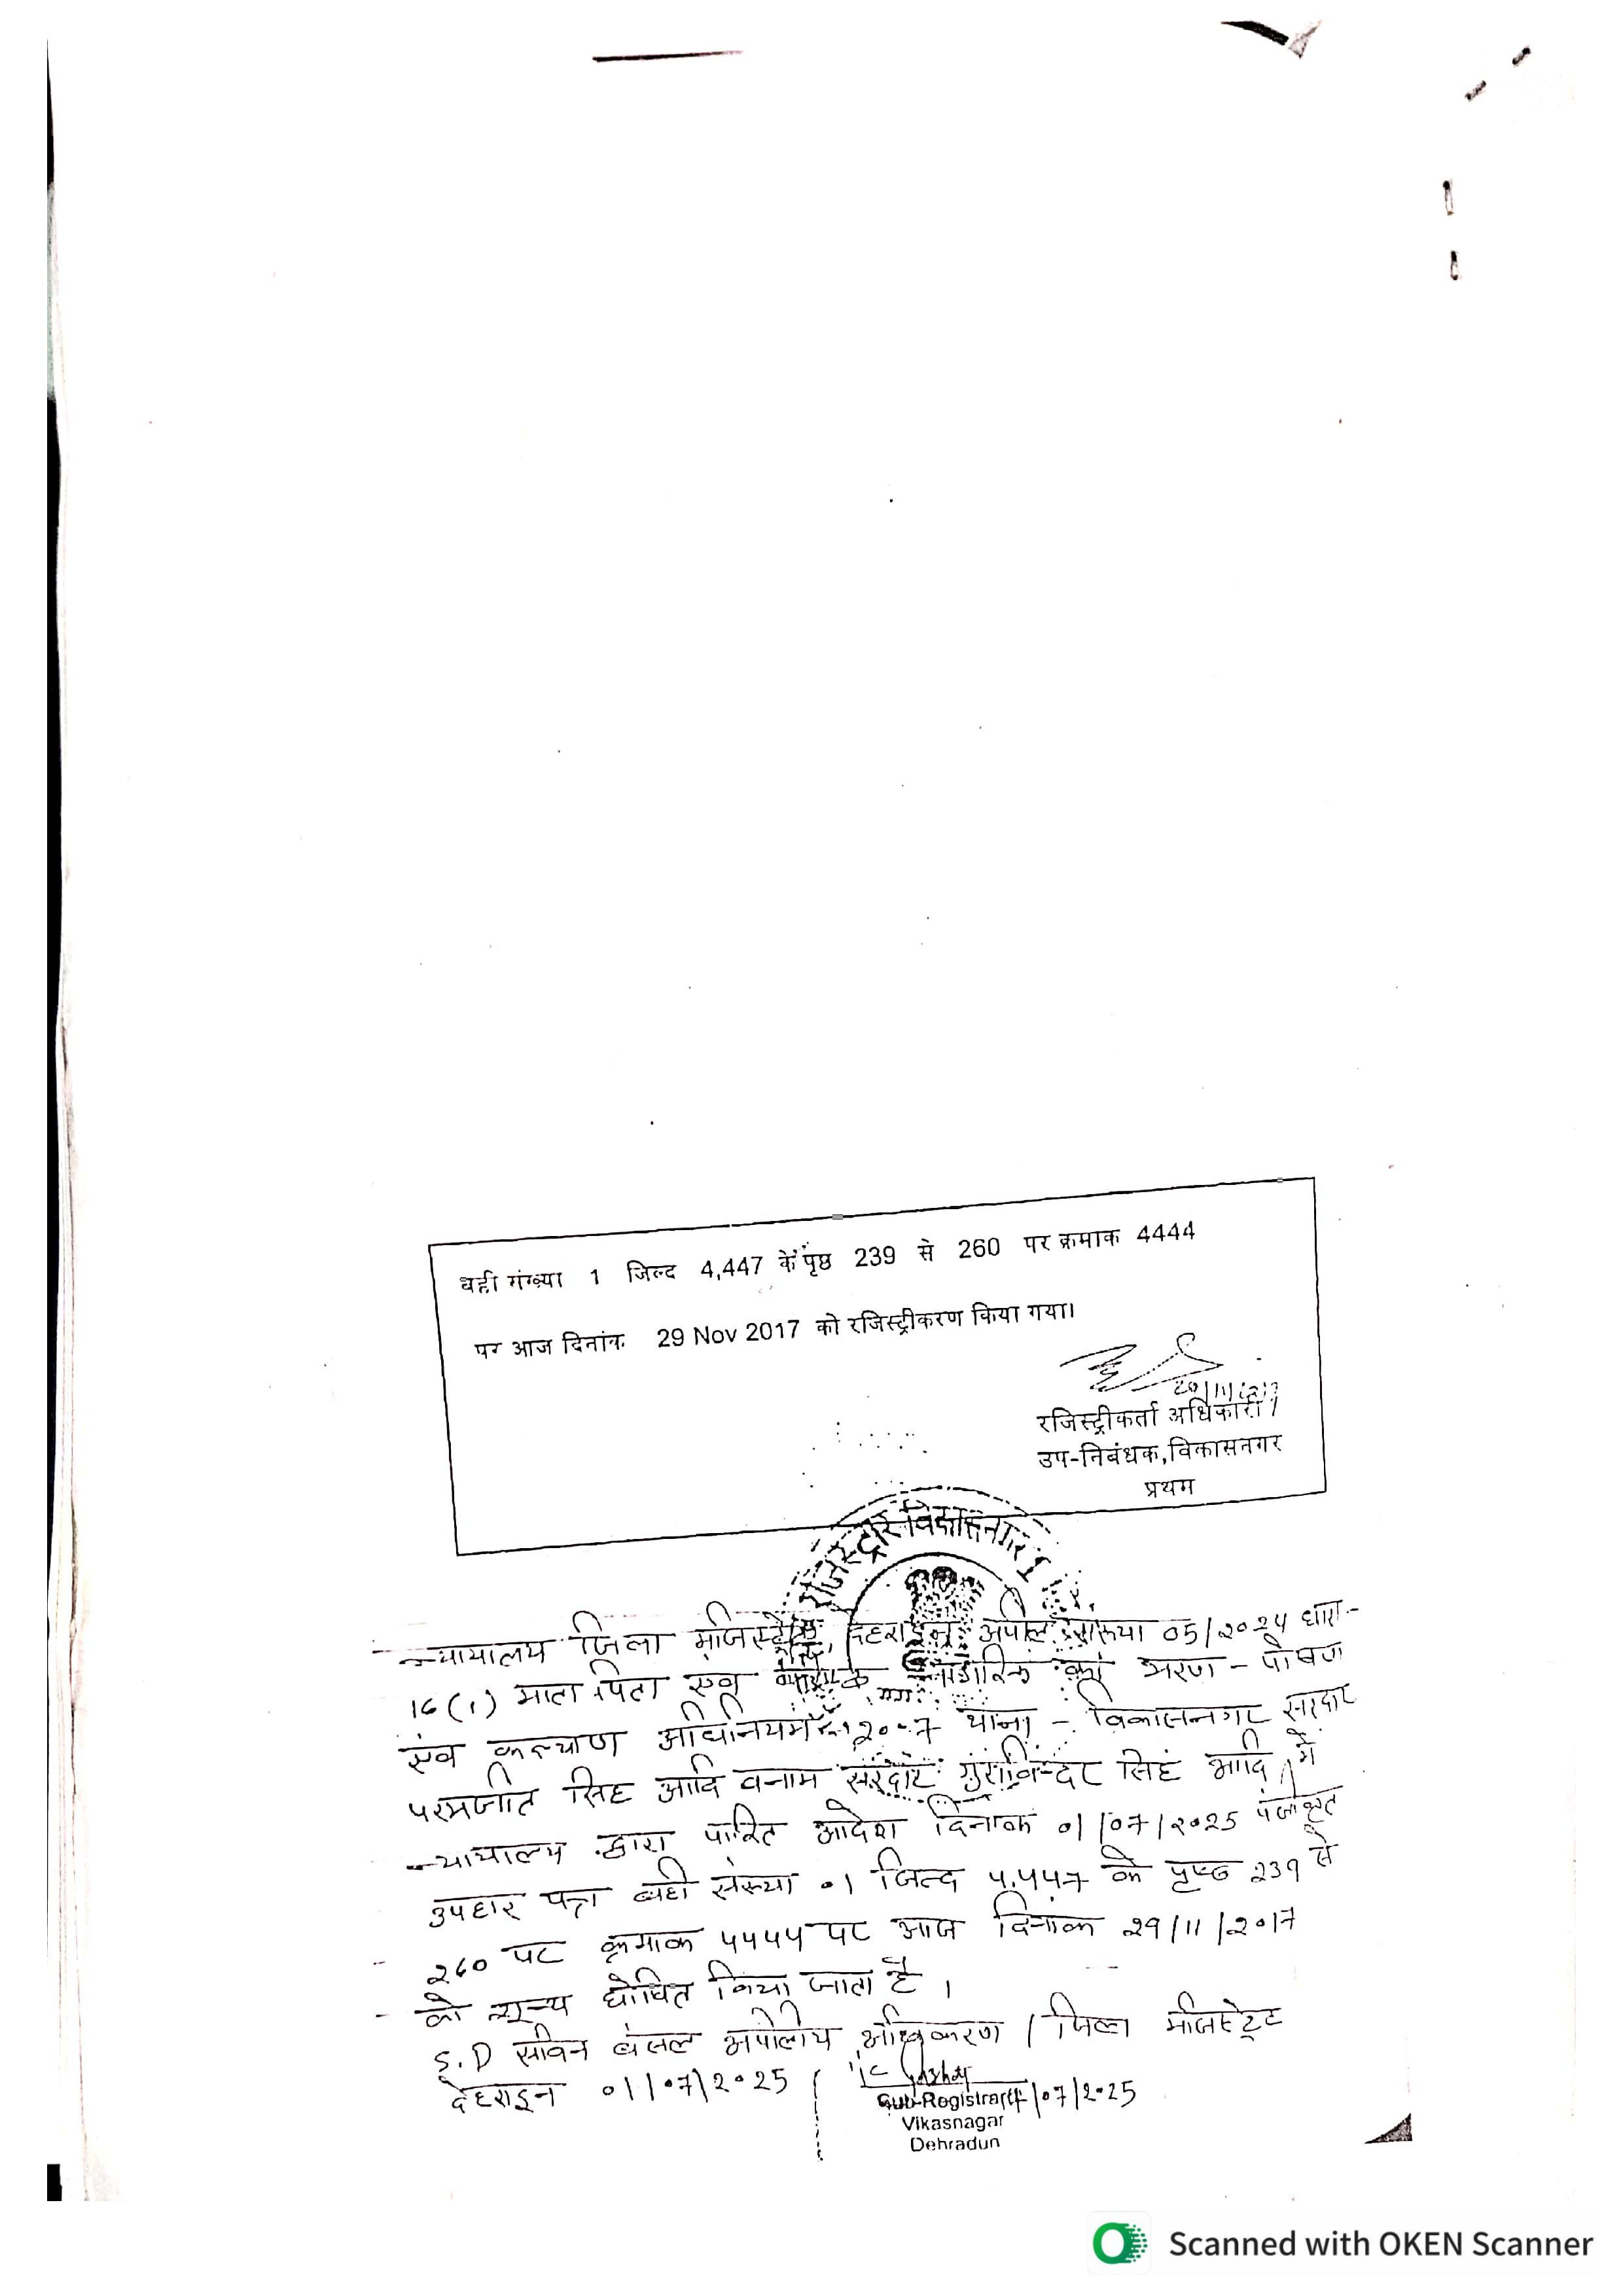 वही संख्या 1 जिल्द 4,447 के पृष्ठ 239 से 260 पर क्रमांक 4444
पर आज दिनांक 29 Nov 2017 को रजिस्ट्रीकरण किया गया।
रजिस्ट्रीकर्ता अधिकारी /
उप-निबंधक,विकासनगर
प्रथम
न्यायालय जिला मजिस्ट्रेट देहरादून अपील संख्या 05/2024 धारा-
16(1) माता पिता एंव नागरिक का भरण - पोषण
एंव कल्याण अधिनियम 2007 थाना - विकासनगर सरदार
परमजीत सिंह आदि वनाम सरदार गुरविन्दर सिंह आदि में
न्यायालय द्वारा पारित आदेश दिनाक 01/07/2025 पंजीकृत
उपहार पत्र बही संख्या 01 जिल्द 4,447 के पृष्ठ 239 से
260 पर क्रमाक 4444 पर आज दिनांक 29/11/2017
को शून्य घोषित किया जाता है ।
S.D सविन बंसल अपीलीय अधिकरण / जिला मजिस्ट्रेट
देहरादून 01/07/2025
Sub-Registrar /07/2025
Vikasnagar
Dehradun
Scanned with OKEN Scanner